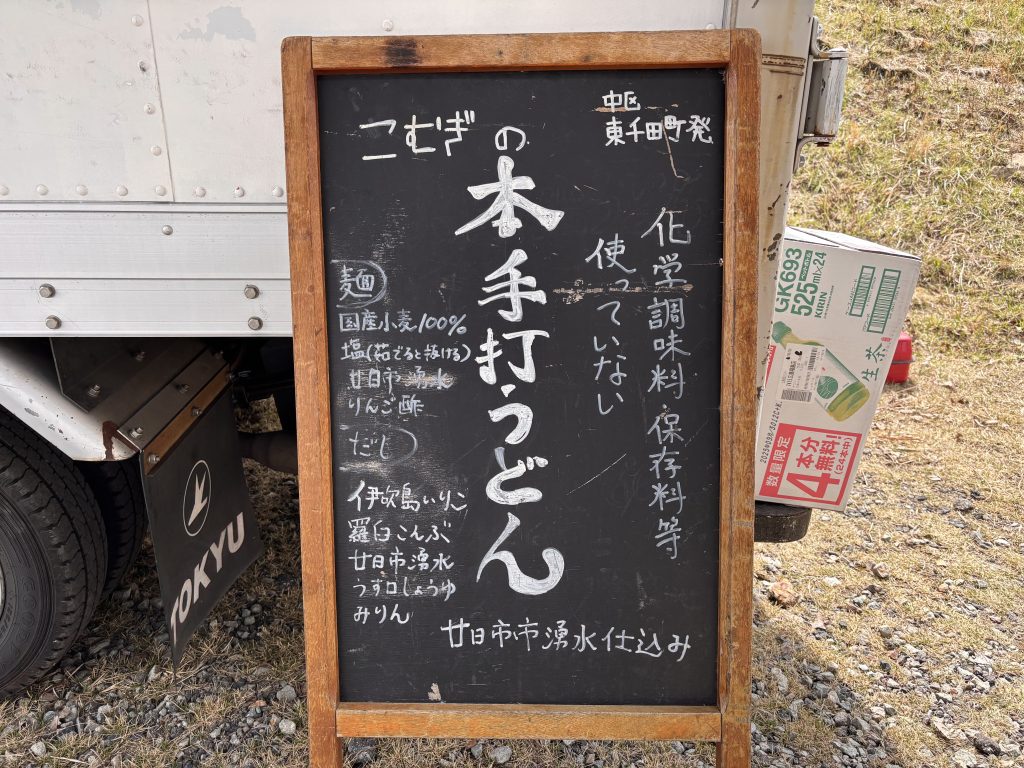 中区
東千田町発
こむぎの
本手打うどん
化学調味料・保存料等
使っていない
麺
国産小麦100%
塩(茹でると抜ける)
廿日市湧水
りんご酢
だし
伊吹島いりこ
羅臼こんぶ
廿日市湧水
うす口しょうゆ
みりん
廿日市市湧水仕込み
TOKYU
GK693
525ml×24
KIRIN
生茶
数量限定
4本分
無料!
(24本中)